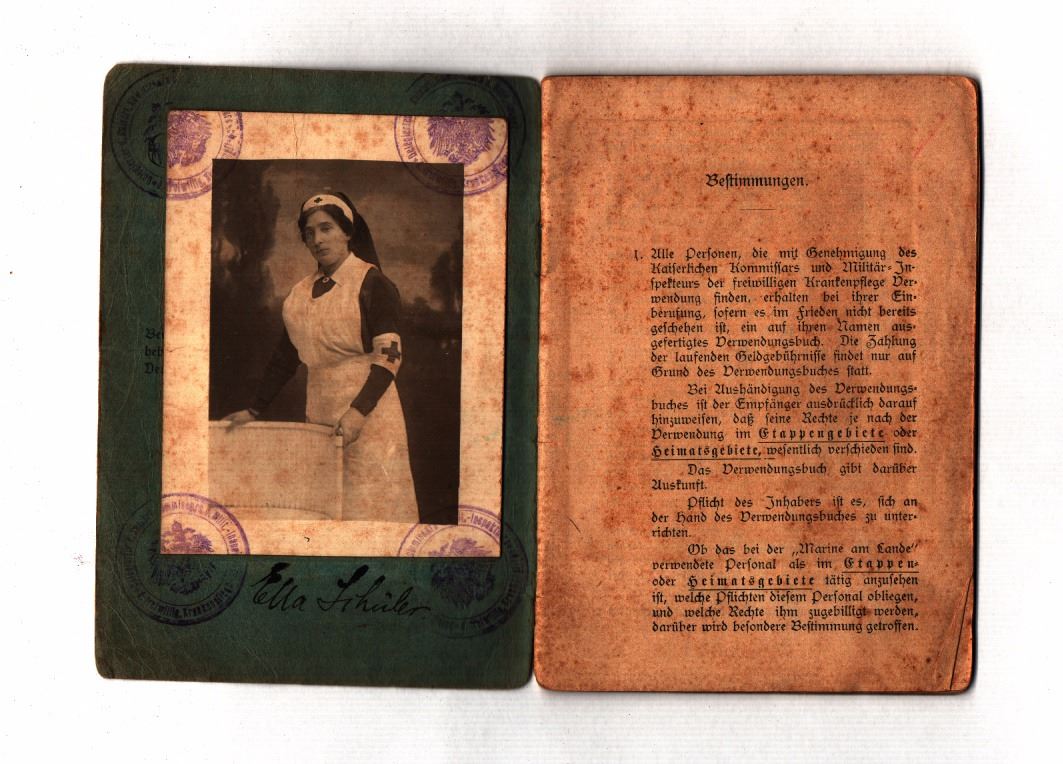 Ella Schüler
Bestimmungen.
1. Alle Personen, die mit Genehmigung des
Kaiserlichen Kommissars und Militär-In-
spekteurs der freiwilligen Krankenpflege Ver-
wendung finden, erhalten bei ihrer Ein-
berufung, sofern es im Frieden nicht bereits
geschehen ist, ein auf ihren Namen aus-
gefertigtes Verwendungsbuch. Die Zahlung
der laufenden Geldgebührnisse findet nur auf
Grund des Verwendungsbuches statt.
Bei Aushändigung des Verwendungs-
buches ist der Empfänger ausdrücklich darauf
hinzuweisen, daß seine Rechte je nach der
Verwendung im Etappengebiete oder
Heimatsgebiete, wesentlich verschieden sind.
Das Verwendungsbuch gibt darüber
Auskunft.
Pflicht des Inhabers ist es, sich an
der Hand des Verwendungsbuches zu unter-
richten.
Ob das bei der „Marine am Lande"
verwendete Personal als im Etappen-
oder Heimatsgebiete tätig anzusehen
ist, welche Pflichten diesem Personal obliegen,
und welche Rechte ihm zugebilligt werden,
darüber wird besondere Bestimmung getroffen.